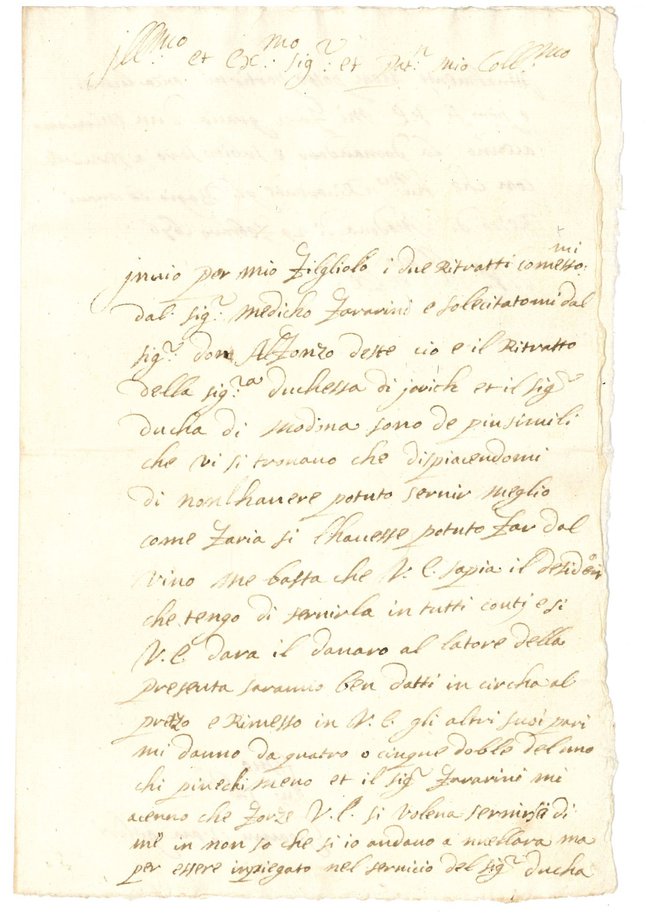 Ill.mo et Ecc.mo Sig.r et Pat.n mio Coll.mo
Inuio per mio Filgliolo i due Ritratti comessomi
dal sig.r medicho Zavarini e solecitatomi dal
sig.r don Alfonzo deste cio e il Ritratto
della sig.ra duchessa di et il sig.r
ducha di Modina sono de piu simili
che vi si trouano che dispiacendomi
di non lhauere potuto seruir meglio
come faria si lhauesse potuto far dal
vino me basta che V. E. sapia il desideri
che tengo di seruirla in tutti conti e si
V. E. dara il danaro al latore della
presenta saranno ben datti in circha al
prezo e Rimesso in V. E. gli altri suoi pari
mi danno da quatro o cinque doble del uno
chi piu e chi meno et il sig.r Zavarini mi
acenno che forze V. E. si voleua seruirse di
me in non so che si io andauo a nuellara ma
per essere inpiegato nel seruicio del sig.r ducha